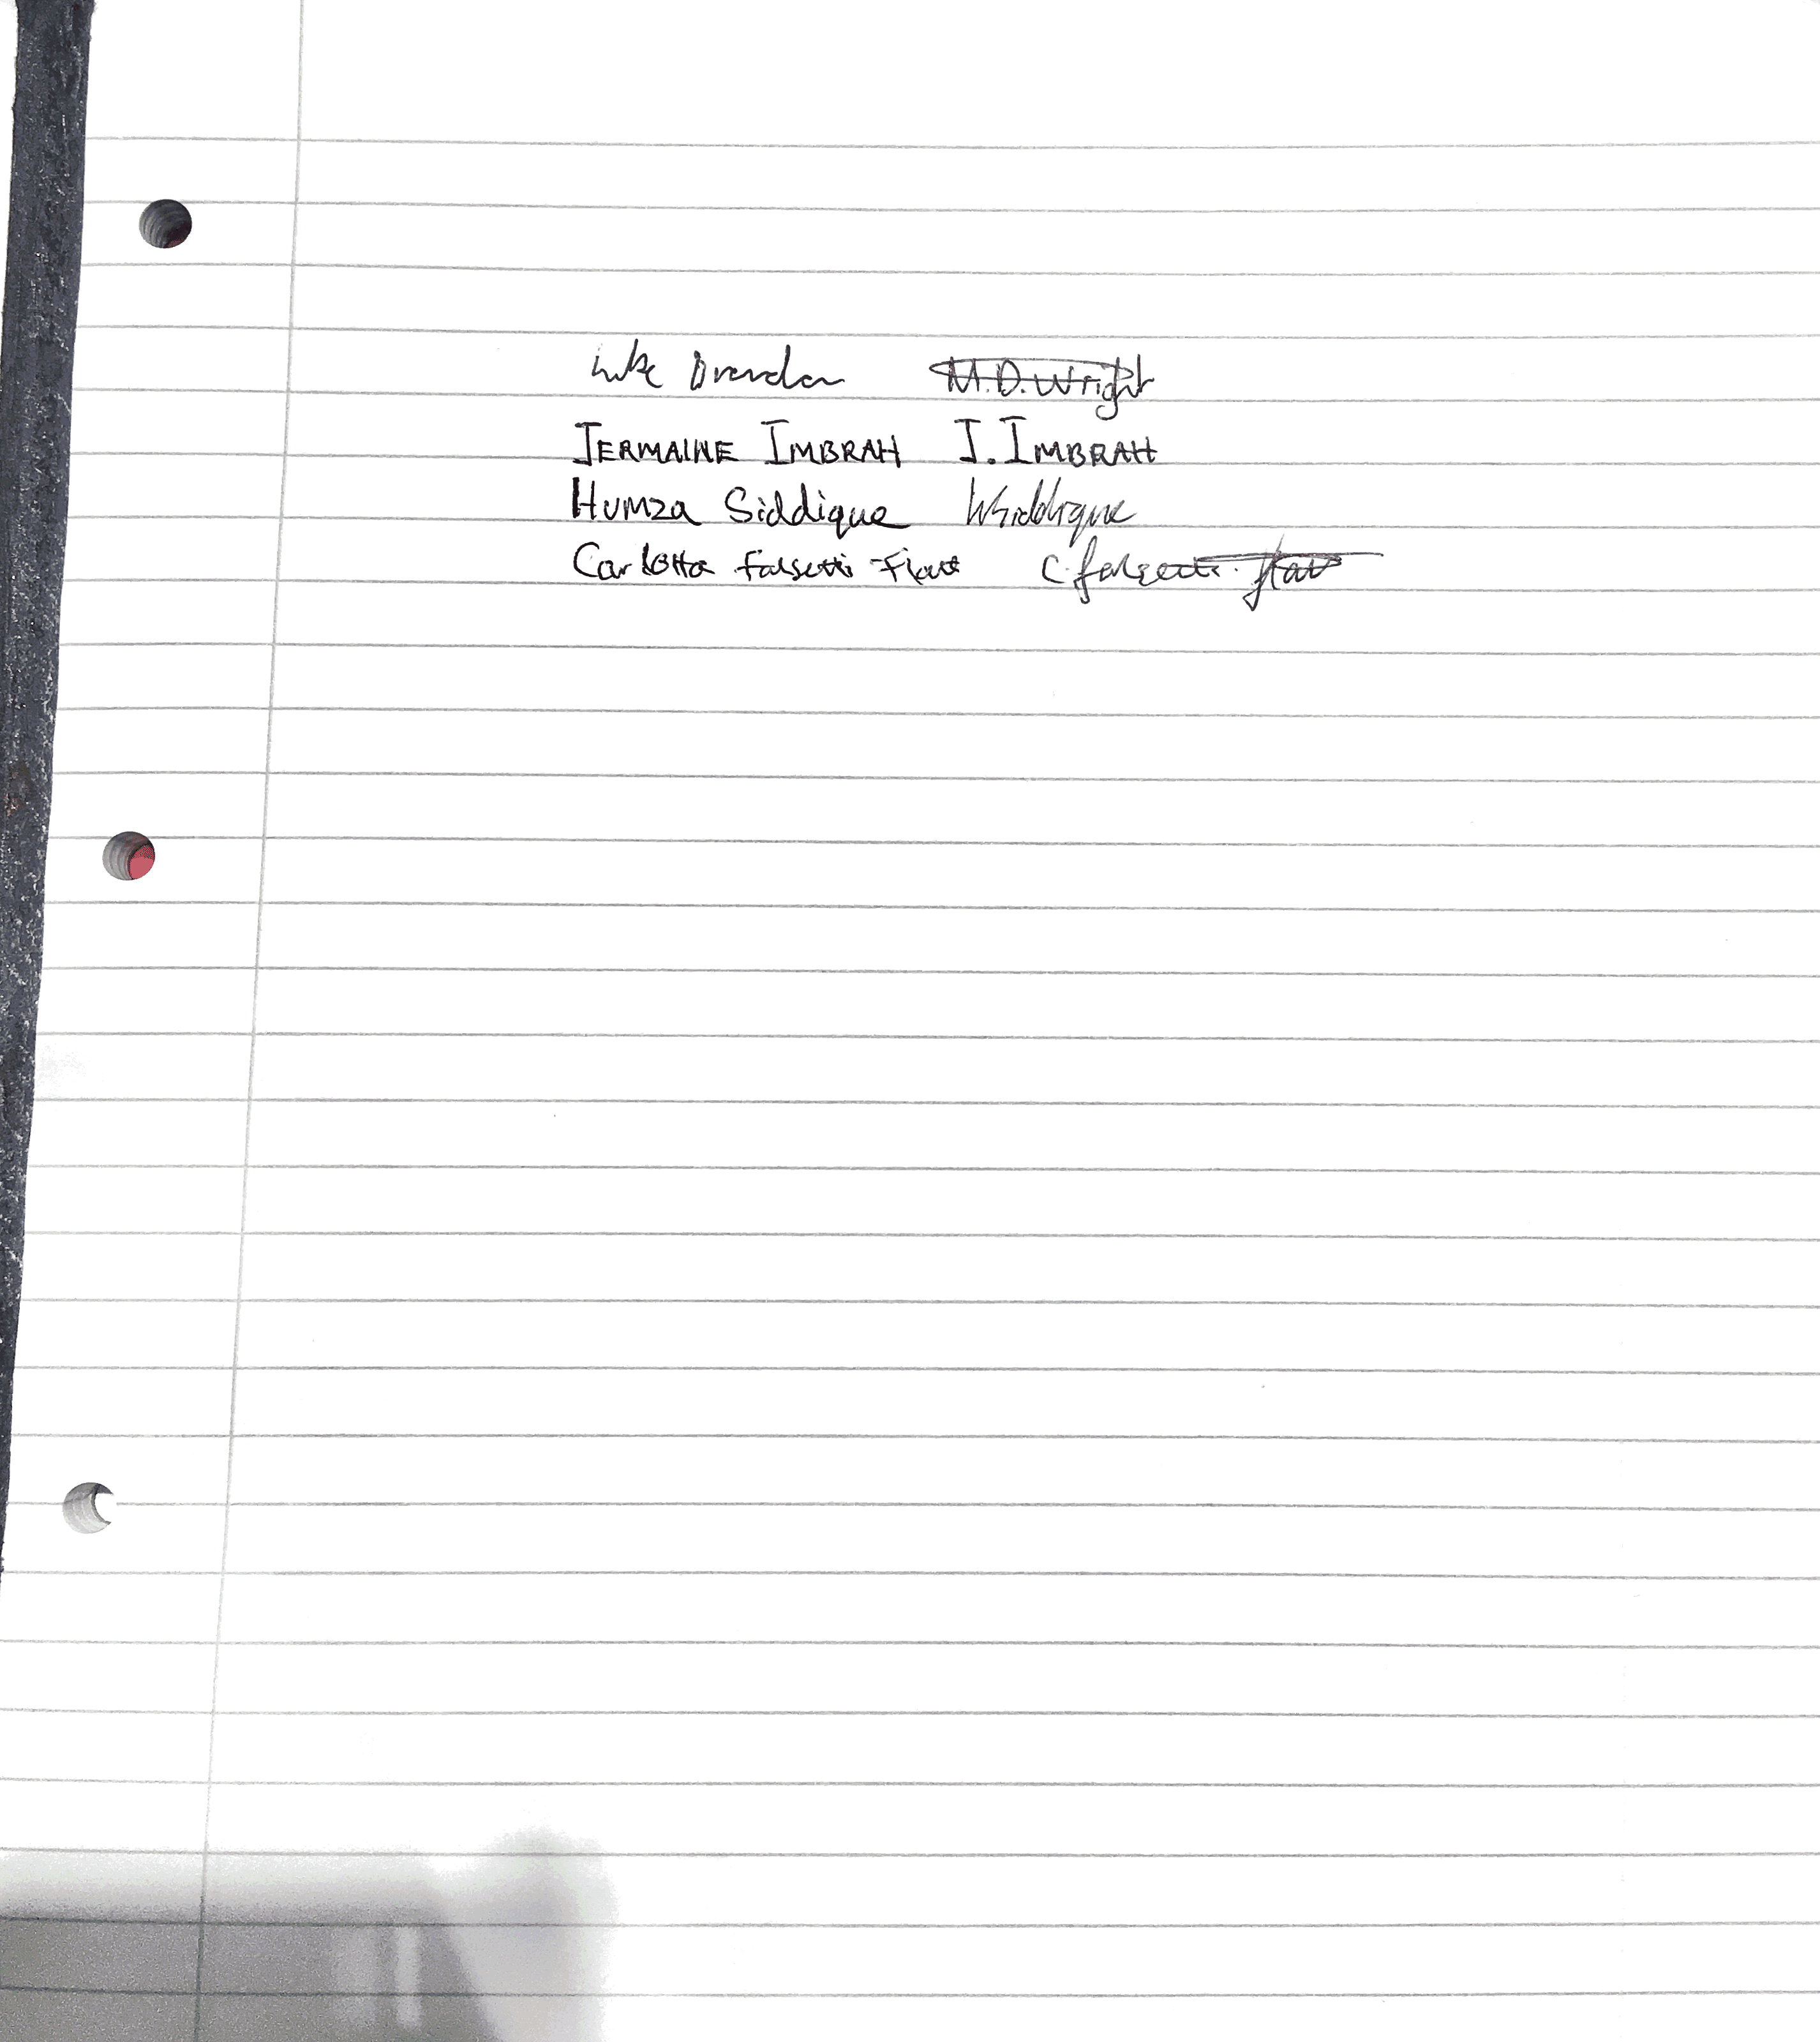 Luke Brandon M.D. Wright
JERMAINE IMBRAH J. IMBRAH
Humza Siddique HSiddique
Carlotta Falsetti-Fiatt C. Falsetti-